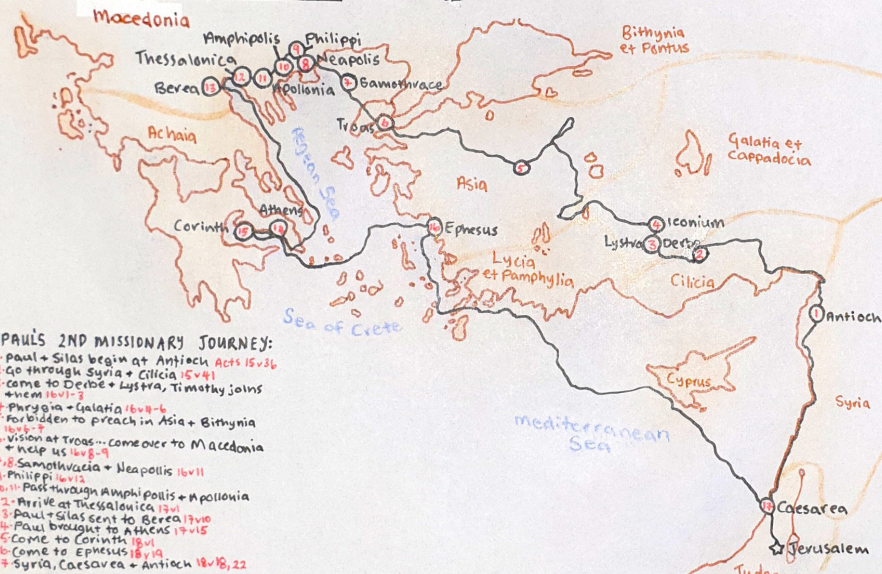 Macedonia
Bithynia
et Pontus
Amphipolis
Philippi
9
Thessalonica
10
8
Neapolis
12
11
Apollonia
7
Samothrace
Berea
13
Troas
6
Achaia
Aegean Sea
Galatia et
Cappadocia
5
Asia
Athens
Corinth
15
14
16
Ephesus
4
Iconium
Lystra
3
Derbe
2
Lycia
et Pamphylia
Cilicia
1
Antioch
Sea of Crete
Cyprus
Syria
mediterranean
Sea
17
Caesarea
Jerusalem
PAUL'S 2ND MISSIONARY JOURNEY:
Paul + Silas begin at Antioch Acts 15v36
Go through Syria + Cilicia 15v41
come to Derbe + Lystra, Timothy joins
them 16v1-3
Phrygia + Galatia 16v4-6
Forbidden to preach in Asia + Bithynia
16v6-7
vision at Troas... come over to Macedonia
+ help us 16v8-9
8. Samothvacia + Neapollis 16v11
Philippi 16v12
11. Pass through Amphipollis + Apollonia
2. Arrive at Thessalonica 17v1
3. Paul + Silas sent to Berea 17v10
4. Paul brought to Athens 17v15
5. Come to Corinth 18v1
6. Come to Ephesus 18v19
7. Syria, Caesavea + Antioch 18v18, 22